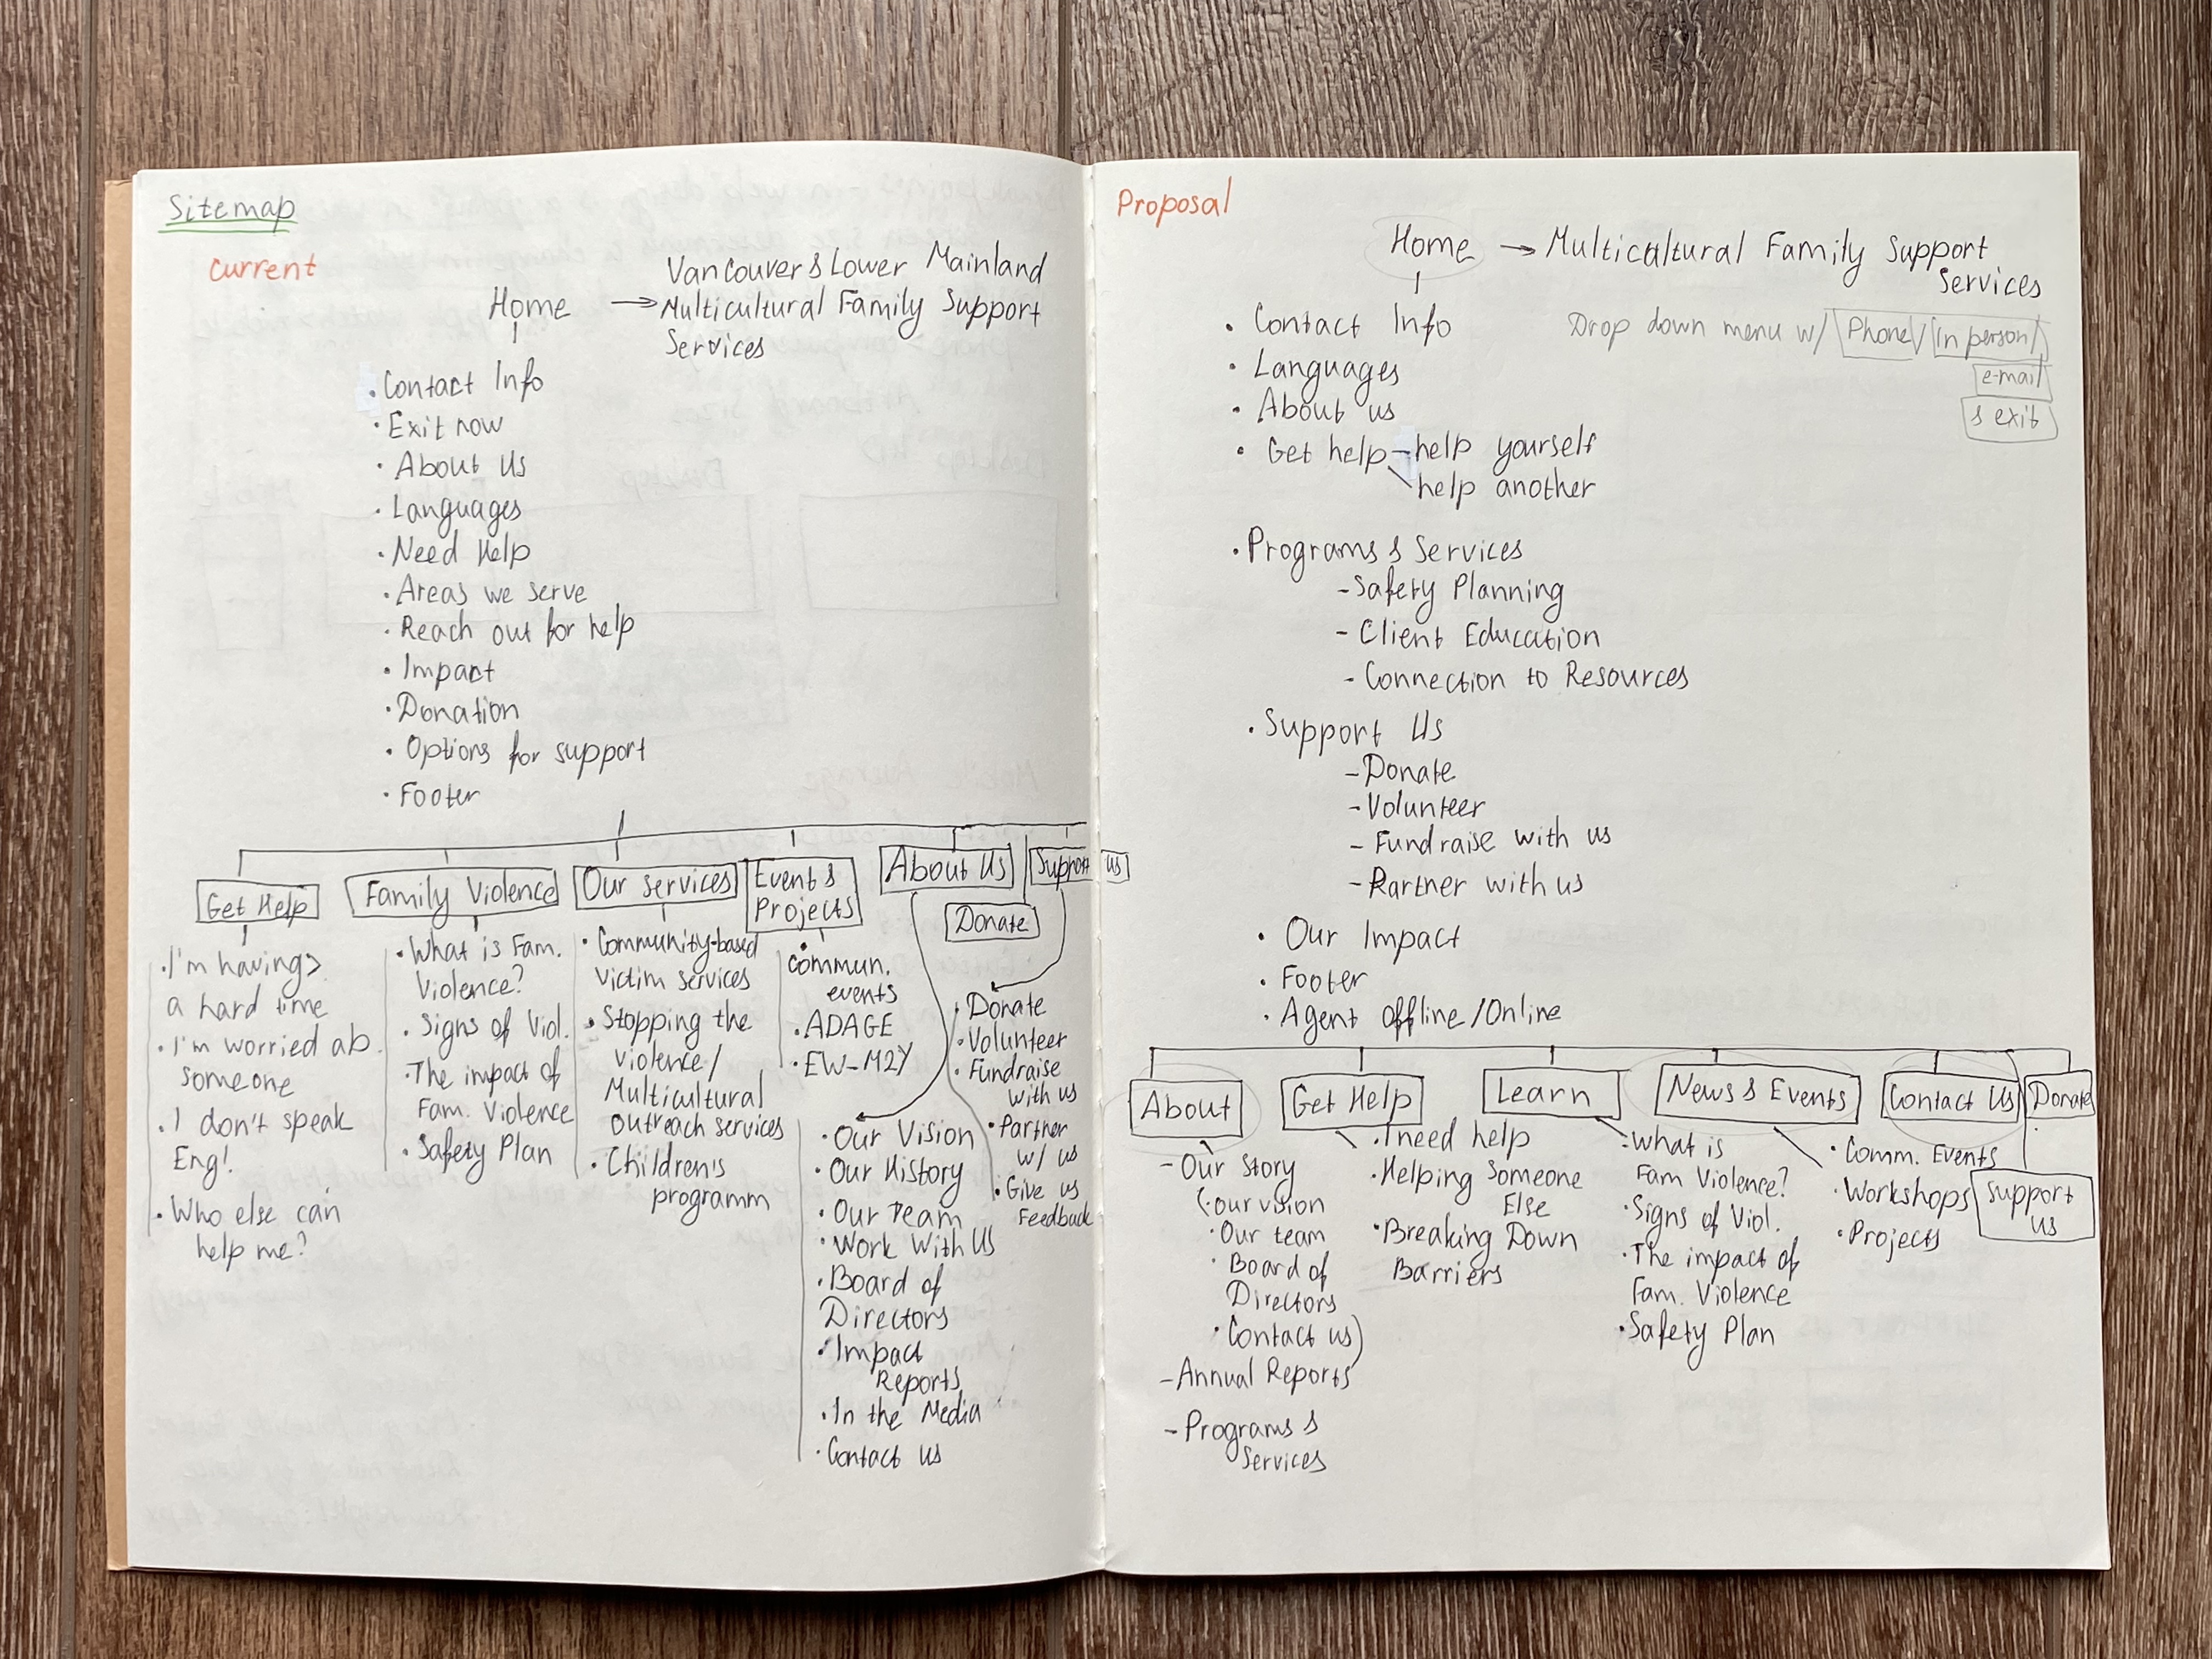 Sitemap
Current
Home → Vancouver & Lower Mainland
Multicultural Family Support
Services
· Contact Info
· Exit now
· About Us
· Languages
· Need Help
· Areas we serve
· Reach out for help
· Impact
· Donation
· Options for support
· Footer
Get Help
· I'm having
a hard time
· I'm worried ab.
someone
· I don't speak
Eng!
· Who else can
help me?
Family Violence
· What is Fam.
Violence?
· Signs of Viol.
· The impact of
Fam. Violence
· Safety Plan
Our services
· Community-based
victim services
· Stopping the
violence/
Multicultural
outreach services
· Children's
programm
Events
Projects
· commun.
events
· ADAGE
· EW-M2Y
About Us
· Our Vision
· Our History
· Our Team
· Work With Us
· Board of
Directors
· Impact
Reports
· In the Media
· Contact us
Donate
Support us
· Donate
· Volunteer
· Fundraise
with us
· Partner
w/ us
· Give us
Feedback
Proposal
Home → Multicaltural Family Support
Services
Drop down menu w/ Phone/ In person/
e-mail
& exit
· Contact Info
· Languages
· About us
· Get help – help yourself
help another
· Programs & Services
- Safety Planning
- Client Education
- Connection to Resources
· Support Us
- Donate
- Volunteer
- Fundraise with us
- Partner with us
· Our Impact
· Footer
· Agent Offline/Online
About
- Our Story
(·our vision
· Our team
· Board of
Directors
· Contact us)
- Annual Reports
- Programs &
Services
Get Help
· I need help
· Helping Someone
Else
· Breaking Down
Barriers
Learn
· What is
Fam Violence?
· Signs of Viol.
· The impact of
Fam. Violence
· Safety Plan
News & Events
· Comm. Events
· Workshops
· Projects
Contact Us
Donate
Support
us